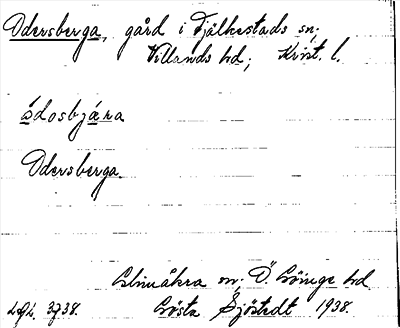 Odersberga, gård i Fjälkestads sn;
Villands hd; Krist. l.
ódosbjära
Odersberga.
Glimåkra sn, Ö. Göinge hd
Gösta Sjöstedt 1938.